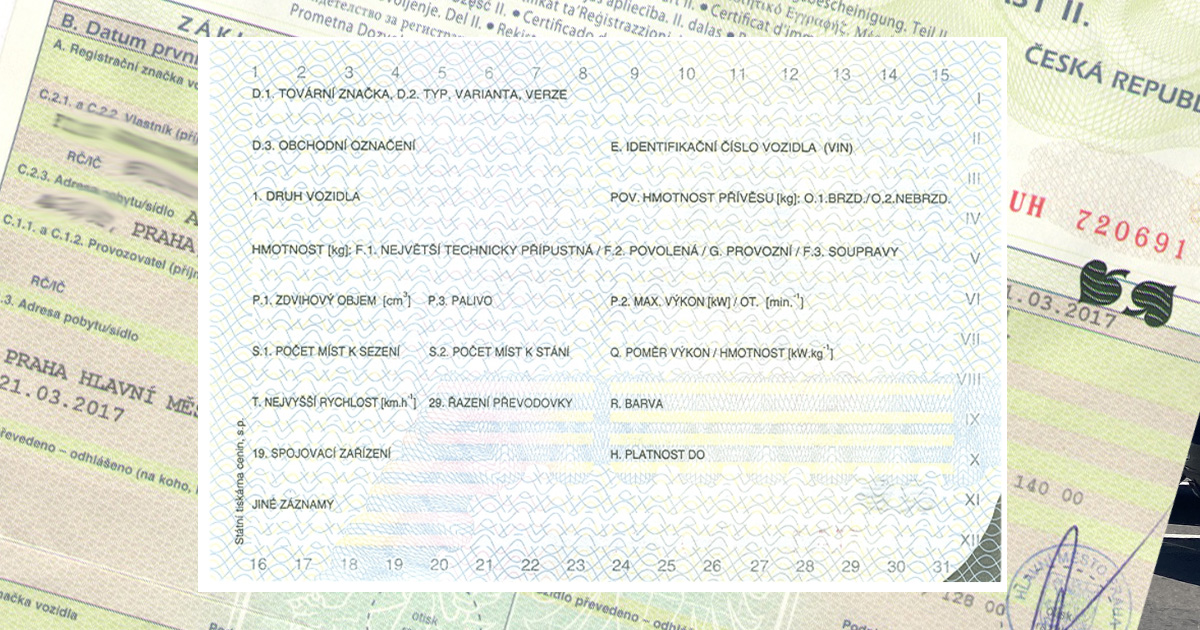 část II.
voljenje. Del II. • Certificado d
Prometna Doz
ČESKÁ REPUBL
B. Datum první
A. Registrační značka vo
C.2.1. a C.2.2. Vlastník (příj
RČ/IČ
C.2.3. Adresa pobytu/sídlo
PRAHA
C.1.1. a C.1.2. Provozovatel (příjm
RČ/IČ
.3. Adresa pobytu/sídlo
PRAHA HLAVNÍ MĚS
21.03.2017
řevedeno – odhlášeno (na koho,
načka vozidla
UH 720691
1.03.2017
140 00
128 00
HLAVNÍ MĚSTO PRAHA
otisk
zidlo převedeno – odhláš
1 2 3 4 5 6 7 8 9 10 11 12 13 14 15
D.1. TOVÁRNÍ ZNAČKA, D.2. TYP, VARIANTA, VERZE
I
II
D.3. OBCHODNÍ OZNAČENÍ E. IDENTIFIKAČNÍ ČÍSLO VOZIDLA (VIN)
III
1. DRUH VOZIDLA POV. HMOTNOST PŘÍVĚSU [kg]: O.1.BRZD./O.2.NEBRZD.
IV
HMOTNOST [kg]: F.1. NEJVĚTŠÍ TECHNICKY PŘÍPUSTNÁ / F.2. POVOLENÁ / G. PROVOZNÍ / F.3. SOUPRAVY
V
P.1. ZDVIHOVÝ OBJEM [cm³] P.3. PALIVO P.2. MAX. VÝKON [kW] / OT. [min.⁻¹]
VI
VII
S.1. POČET MÍST K SEZENÍ S.2. POČET MÍST K STÁNÍ Q. POMĚR VÝKON / HMOTNOST [kW.kg⁻¹]
VIII
T. NEJVYŠŠÍ RYCHLOST [km.h⁻¹] 29. ŘAZENÍ PŘEVODOVKY R. BARVA
IX
19. SPOJOVACÍ ZAŘÍZENÍ H. PLATNOST DO
X
JINÉ ZÁZNAMY
XI
XII
16 17 18 19 20 21 22 23 24 25 26 27 28 29 30 31
Státní tiskárna cenin, s.p.